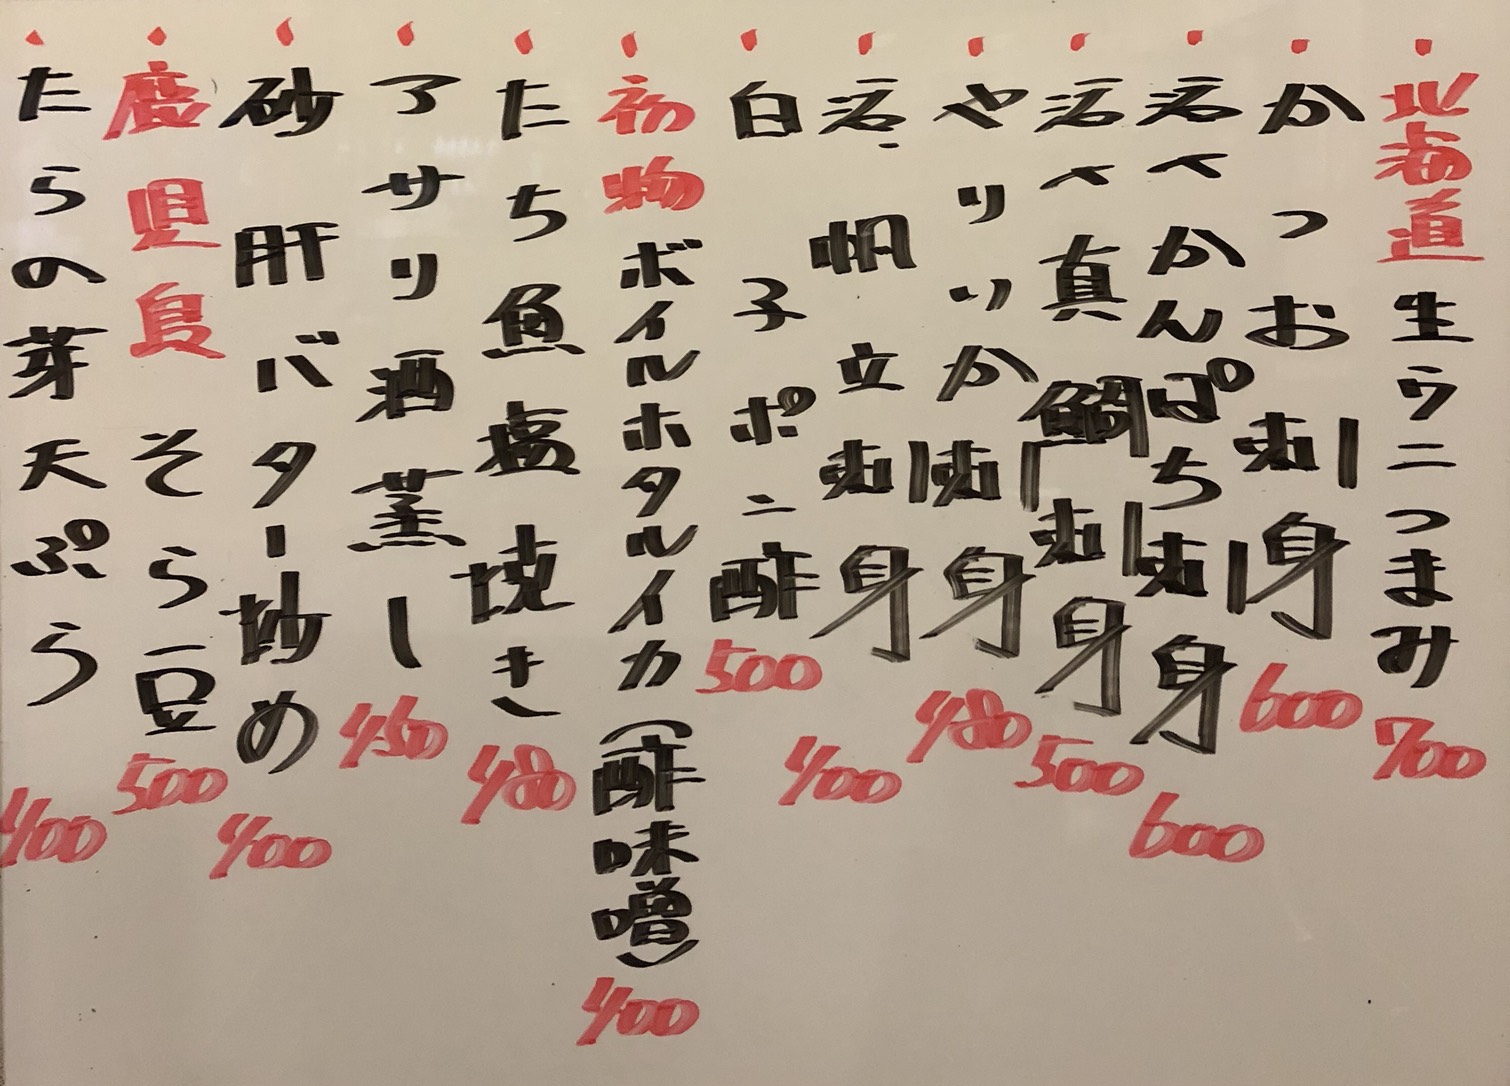 北海道生ウニつまみ 700
かつお刺身 600
活〆かんぱち刺身 600
活〆真鯛刺身 500
やりいか刺身 480
活帆立刺身 400
白子ポン酢 500
初物ボイルホタルイカ(酢味噌) 400
たち魚塩焼き 480
アサリ酒蒸し 450
砂肝バター炒め 400
鹿児島そら豆 500
たらの芽天ぷら 400